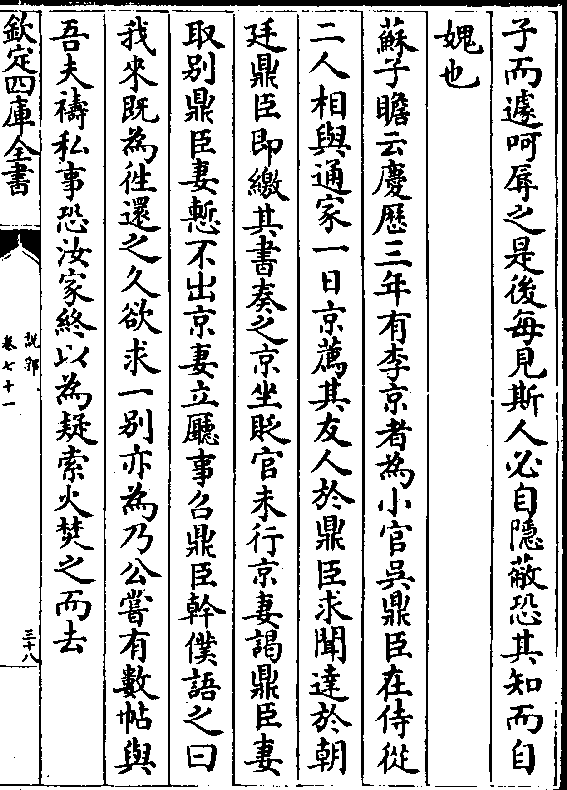 子而遽呵辱之是後每見斯人必自隱蔽恐其知而自
媿也
蘇子瞻云慶歷三年有李京者為小官吳鼎臣在侍從
二人相與通家一日京薦其友人於鼎臣求聞達於朝
廷鼎臣即繳其書奏之京坐貶官未行京妻謁鼎臣妻
取别鼎臣妻慙不出京妻立廳事召鼎臣幹僕語之曰
我來既為徃還之久欲求一别亦為乃公嘗有數帖與
吾夫禱私事恐汝家終以為疑索火焚之而去
欽定四庫全書
説郛
卷七十一
三十八